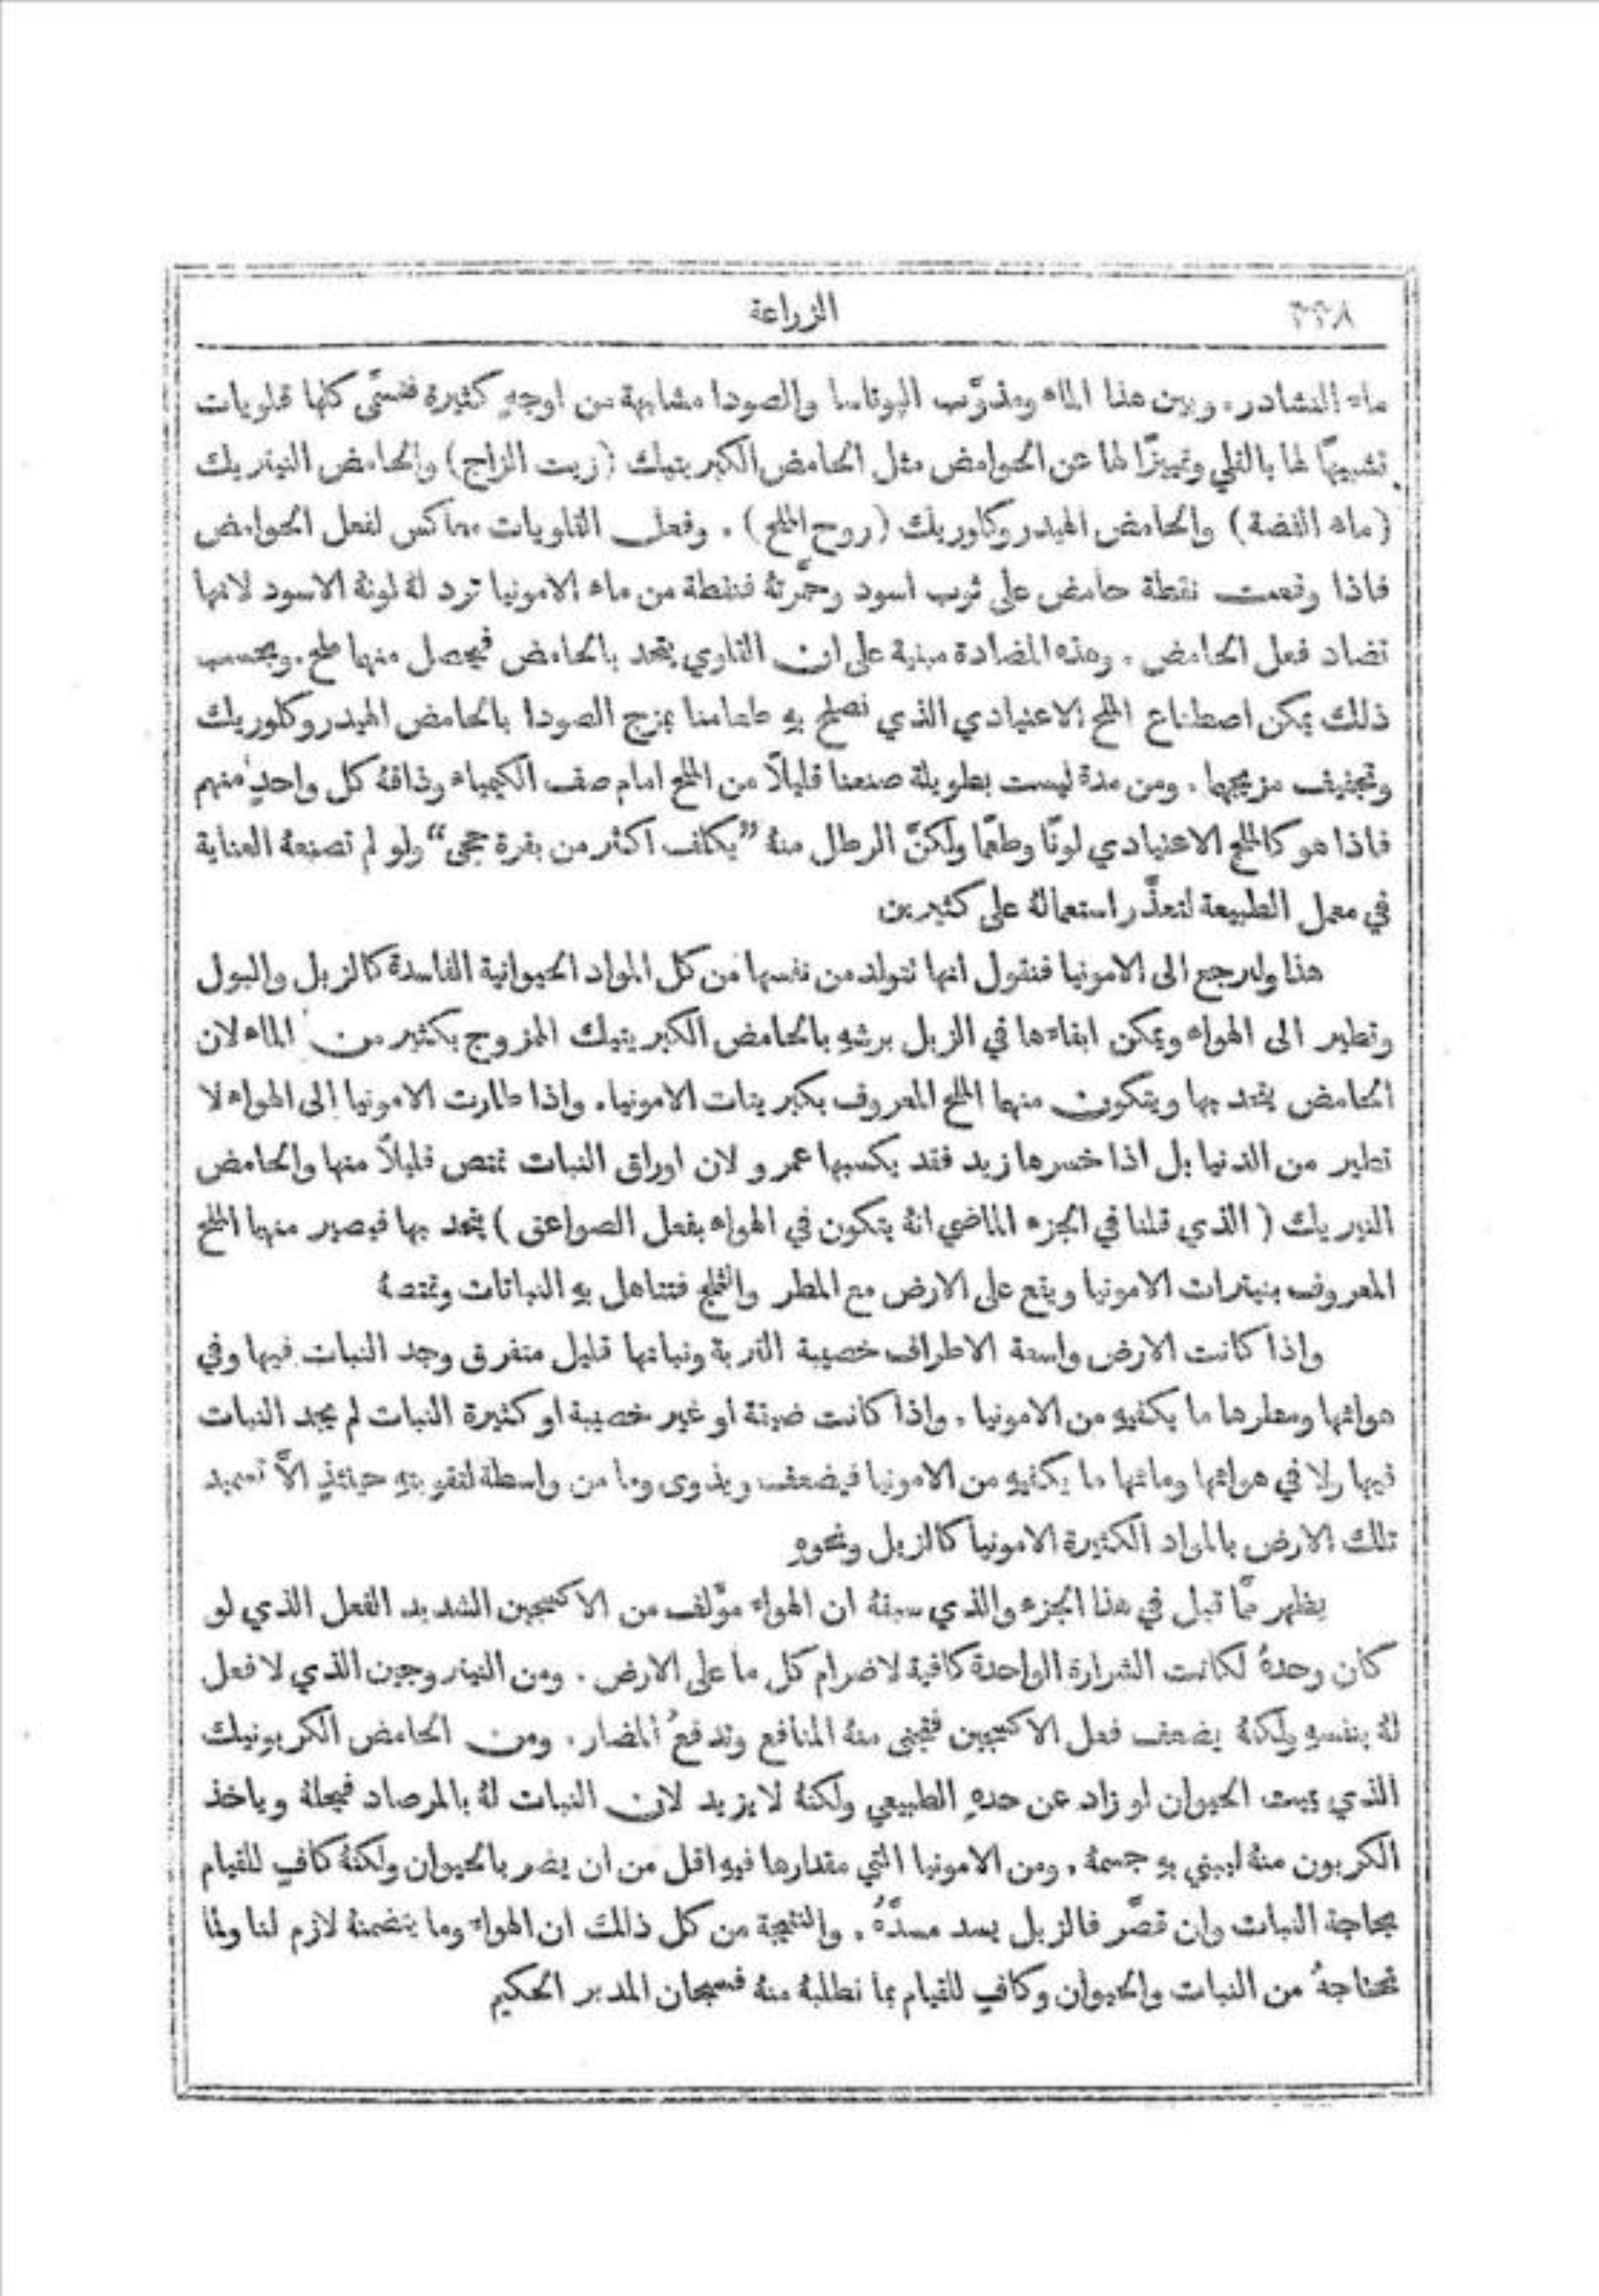 ٢٣٨
الزراعة
ماء النشادر. وبين هذا الماء ومذوَّب البوتاسا والصودا مشابهة من اوجهٍ كثيرة فتسمَّى كلها قلويات
تشبيهًا لها بالقلي وتمييزًا لها عن الحوامض مثل الحامض الكبريتيك (زيت الزاج) والحامض النيتريك
(ماء الفضة) والحامض الهيدروكلوريك (روح الملح). وفعل القلويات معاكس لفعل الحوامض
فاذا وقعت نقطة حامض على ثوب اسود وحمَّرتهُ فنقطة من ماء الامونيا ترد لهُ لونهُ الاسود لانها
تضاد فعل الحامض. وهذه المضادة مبنية على ان القلوي يتحد بالحامض فيحصل منهما ملح. وبحسب
ذلك يمكن اصطناع الملح الاعتيادي الذي نصلح بهِ طعامنا بمزج الصودا بالحامض الهيدروكلوريك
وتجفيف مزيجهما. ومن مدة ليست بطويلة صنعنا قليلاً من الملح امام صف الكيمياء وذاقهُ كل واحدٍ منهم
فاذا هو كالملح الاعتيادي لونًا وطعمًا ولكنَّ الرطل منهُ ”يكلف اكثر من بقرة جحى“ ولو لم تصنعهُ العناية
في معمل الطبيعة لتعذَّر استعمالهُ على كثيرين
هذا ولنرجع الى الامونيا فنقول انها تتولد من نفسها من كل المواد الحيوانية الفاسدة كالزبل والبول
وتطير الى الهواء ويمكن ابقاءها في الزبل برشهِ بالحامض الكبريتيك الممزوج بكثير من الماء لان
الحامض يتحد بها ويتكون منهما الملح المعروف بكبريتات الامونيا. واذا طارت الامونيا إلى الهواء لا
تطير من الدنيا بل اذا خسرها زيد فقد يكسبها عمرو لان اوراق النبات تمتص قليلاً منها والحامض
النيريك (الذي قلنا في الجزء الماضي انهُ يتكون في الهواء بفعل الصواعق) يتحد بها فيصير منهما الملح
المعروف بنيترات الامونيا ويقع على الارض مع المطر والثلج فتتاهل بهِ النباتات وتمتصهُ
واذا كانت الارض واسعة الاطراف خصيبة التربة ونباتها قليل متفرق وجد النبات فيها وفي
هوائها ومطرها ما يكفيهِ من الامونيا. واذا كانت ضيقة او غير خصيبة او كثيرة النبات لم يجد النبات
فيها ولا في هوائها ومائها ما يكفيهِ من الامونيا فيضعف ويذوى وما من واسطة لتقويتهِ حينئذٍ الاَّ تسميد
تلك الارض بالمواد الكثيرة الامونيا كالزبل ونحوهِ
يظهر ممَّا قيل في هذا الجزء والذي سبقهُ ان الهواء مؤَلف من الاكسجين الشديد الفعل الذي لو
كان وحدهُ لكانت الشرارة الواحدة كافية لاضرام كل ما على الارض. ومن النيتروجين الذي لا فعل
لهُ بنفسهِ ولكنهُ يضعف فعل الاكسجين فتجنى منهُ المنافع وتدفع المضار. ومن الحامض الكربونيك
الذي يميت الحيوان لو زاد عن حدهِ الطبيعي ولكنهُ لا يزيد لان النبات لهُ بالمرصاد فيحلهُ وياخذ
الكربون منهُ ليبني بهِ جسمهُ. ومن الامونيا التي مقدارها فيهِ اقل من ان يضر بالحيوان ولكنهُ كافٍ للقيام
بحاجة النبات وان قصَّر فالزبل يسد مسدَّهُ. والنتيجة من كل ذلك ان الهواء وما يتضمنهُ لازم لنا ولما
نحتاجهُ من النبات والحيوان وكافٍ للقيام بما نطلبهُ منهُ فسبحان المدبر الحكيم